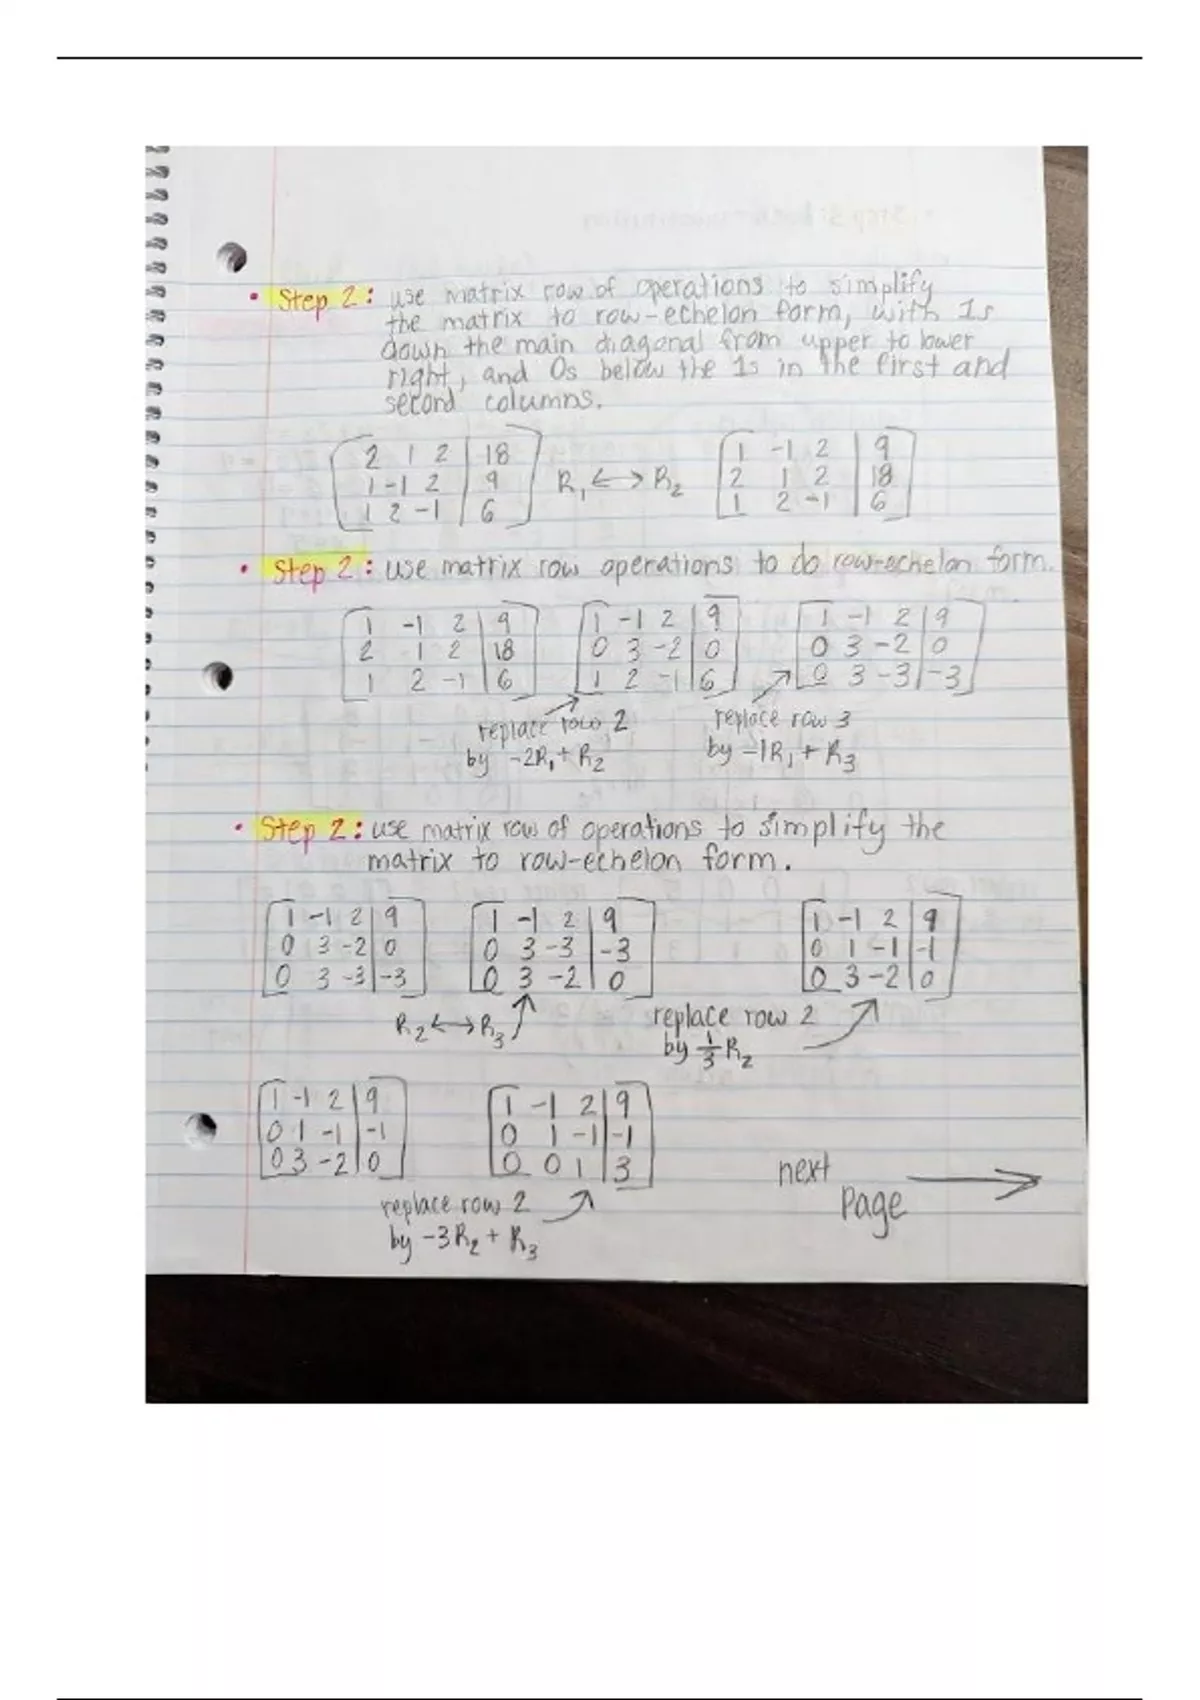 • Step 2: use matrix row of operations to simplify
the matrix to row-echelon form, with 1s
down the main diagonal from upper to lower
right, and 0s below the 1s in the first and
second columns.
2 1 2 | 18
1 -1 2 | 9
1 2 -1 | 6
R₁ ↔ R₂
1 -1 2 | 9
2 1 2 | 18
1 2 -1 | 6
• Step 2: use matrix row operations to do row-echelon form.
1 -1 2 | 9
2 1 2 | 18
1 2 -1 | 6
1 -1 2 | 9
0 3 -2 | 0
1 2 -1 | 6
1 -1 2 | 9
0 3 -2 | 0
0 3 -3 | -3
replace row 2
by -2R₁ + R₂
replace row 3
by -1R₁ + R₃
• Step 2: use matrix row of operations to simplify the
matrix to row-echelon form.
1 -1 2 | 9
0 3 -2 | 0
0 3 -3 | -3
1 -1 2 | 9
0 3 -3 | -3
0 3 -2 | 0
1 -1 2 | 9
0 1 -1 | -1
0 3 -2 | 0
R₂ ↔ R₃
replace row 2
by 1/3 R₂
1 -1 2 | 9
0 1 -1 | -1
0 3 -2 | 0
1 -1 2 | 9
0 1 -1 | -1
0 0 1 | 3
replace row 2
by -3R₂ + R₃
next
page →